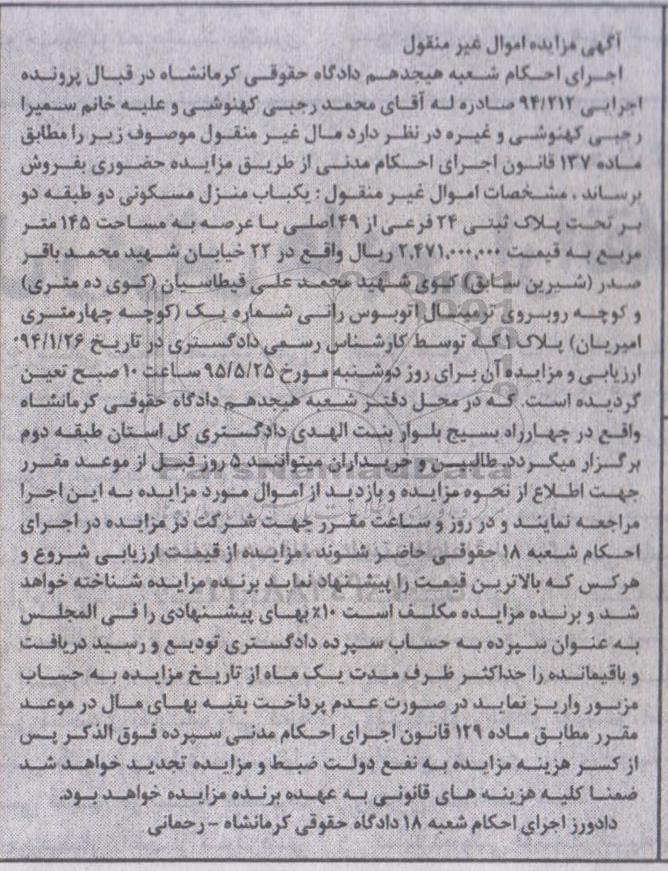 آگهی مزایده اموال غیر منقول
اجرای احکام شعبه هیجدهم دادگاه حقوقی کرمانشاه در قبال پرونده
اجرایی ۹۴/۲۱۲ صادره له آقای محمد رجبی کهنوشی و علیه خانم سمیرا
رجبی کهنوشی و غیره در نظر دارد مال غیر منقول موصوف زیر را مطابق
ماده ۱۳۷ قانون اجرای احکام مدنی از طریق مزایده حضوری بفروش
برساند . مشخصات اموال غیر منقول : یکباب منزل مسکونی دو طبقه دو
بر تحت پلاک ثبتی ۲۴ فرعی از ۴۹ اصلی با عرصه به مساحت ۱۴۵ متر
مربع به قیمت ۲,۴۷۱,۰۰۰,۰۰۰ ریال واقع در ۲۲ خیابان شهید محمد باقر
صدر (شیرین سابق) کوی شهید محمد علی قیطاسیان (کوی ده متری)
و کوچه روبروی ترمینال اتوبوس رانی شماره یک (کوچه چهارمتری
امیریان) پلاک ۱ که توسط کارشناس رسمی دادگستری در تاریخ ۹۴/۱/۲۶
ارزیابی و مزایده آن برای روز دوشنبه مورخ ۹۵/۵/۲۵ ساعت ۱۰ صبح تعین
گردیده است. که در محل دفتر شعبه هیجدهم دادگاه حقوقی کرمانشاه
واقع در چهارراه بسیج بلوار بنت الهدی دادگستری کل استان طبقه دوم
برگزار میگردد. طالبین و خریداران میتوانند ۵ روز قبل از موعد مقرر
جهت اطلاع از نحوه مزایده و بازدید از اموال مورد مزایده به این اجرا
مراجعه نمایند و در روز و ساعت مقرر جهت شرکت در مزایده در اجرای
احکام شعبه ۱۸ حقوقی حاضر شوند. مزایده از قیمت ارزیابی شروع و
هرکس که بالاترین قیمت را پیشنهاد نماید برنده مزایده شناخته خواهد
شد و برنده مزایده مکلف است ۱۰٪ بهای پیشنهادی را فی المجلس
به عنوان سپرده به حساب سپرده دادگستری تودیع و رسید دریافت
و باقیمانده را حداکثر ظرف مدت یک ماه از تاریخ مزایده به حساب
مزبور واریز نماید در صورت عدم پرداخت بقیه بهای مال در موعد
مقرر مطابق ماده ۱۲۹ قانون اجرای احکام مدنی سپرده فوق الذکر پس
از کسر هزینه مزایده به نفع دولت ضبط و مزایده تجدید خواهد شد
ضمنا کلیه هزینه های قانونی به عهده برنده مزایده خواهد بود.
دادورز اجرای احکام شعبه ۱۸ دادگاه حقوقی کرمانشاه - رحمانی